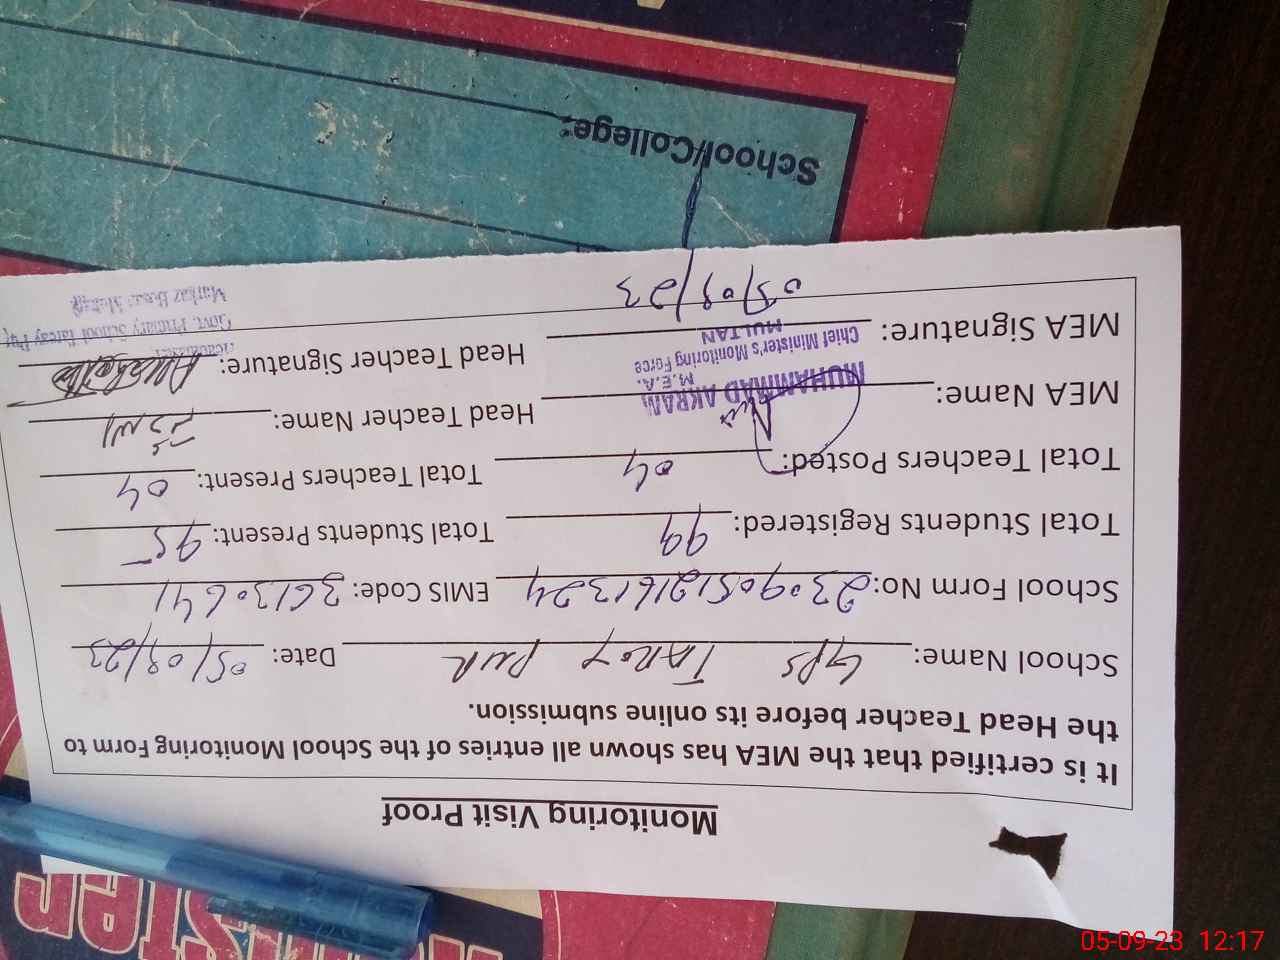 Monitoring Visit Proof
It is certified that the MEA has shown all entries of the School Monitoring Form to
the Head Teacher before its online submission.
School Name: GPS TAROY PUR Date: 05/09/23
School Form No: 23090512161324 EMIS Code: 36130641
Total Students Registered: 99 Total Students Present: 95
Total Teachers Posted: 04 Total Teachers Present: 04
MEA Name: Head Teacher Name:
MUHAMMAD AKRAM
M.E.A.
Chief Minister's Monitoring Force
MULTAN
MEA Signature: Head Teacher Signature:
05/09/23
Govt. Primary School
Markaz
School/College:
05-09-23 12:17